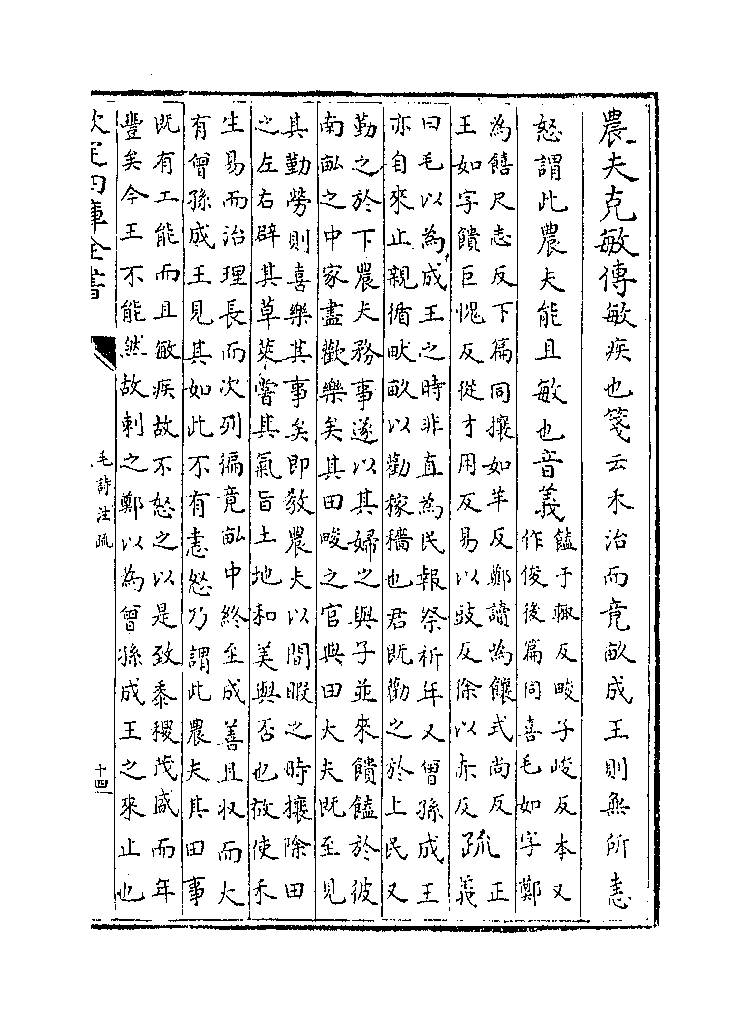 農夫克敏傳敏疾也箋云禾治而竟畝成王則無所恚
怒謂此農夫能且敏也音義饁于輒反畯子峻反本又
作俊後篇同喜毛如字鄭
為饎尺志反下篇同攘如羊反鄭讀為饟式尚反
王如字饋巨愧反從才用反易以豉反徐以赤反疏正
義
曰毛以為成王之時非直為民報祭祈年又曾孫成王
亦自來止親循畎畝以勸稼穡也君既勸之於上民又
勤之於下農夫務事遂以其婦之與子並來饋饁於彼
南畝之中家盡歡樂矣其田畯之官與田大夫既至見
其勤勞則喜樂其事矣即教農夫以間暇之時攘除田
之左右辟其草萊嘗其氣旨土地和美與否也故使禾
生易而治理長而次列徧竟畝中終至成善且収而大
有曾孫成王見其如此不有恚怒乃謂此農夫其田事
既有工能而且敏疾故不怒之以是致黍稷茂盛而年
豐矣今王不能然故刺之鄭以為曾孫成王之來止也
欽定四庫全書
毛詩注疏
十四